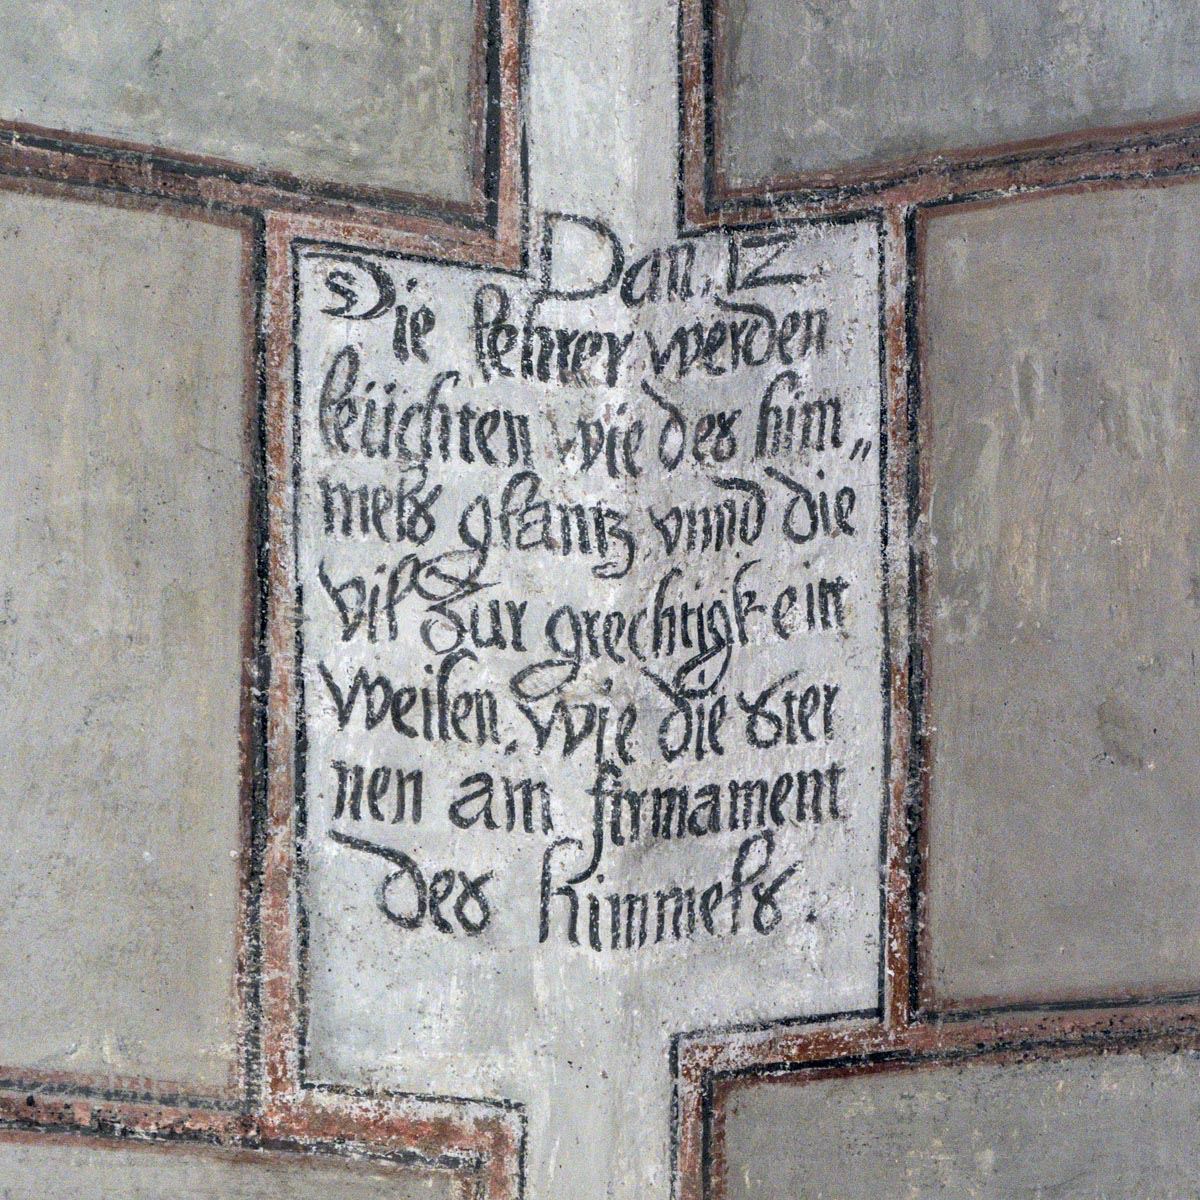 Dan. 12
Die lehrer werden
leüchten wie des him„
mels glantz vnnd die
vil zur grechtigkeitt
weisen, wie die ster
nen am firmament
des himmels.